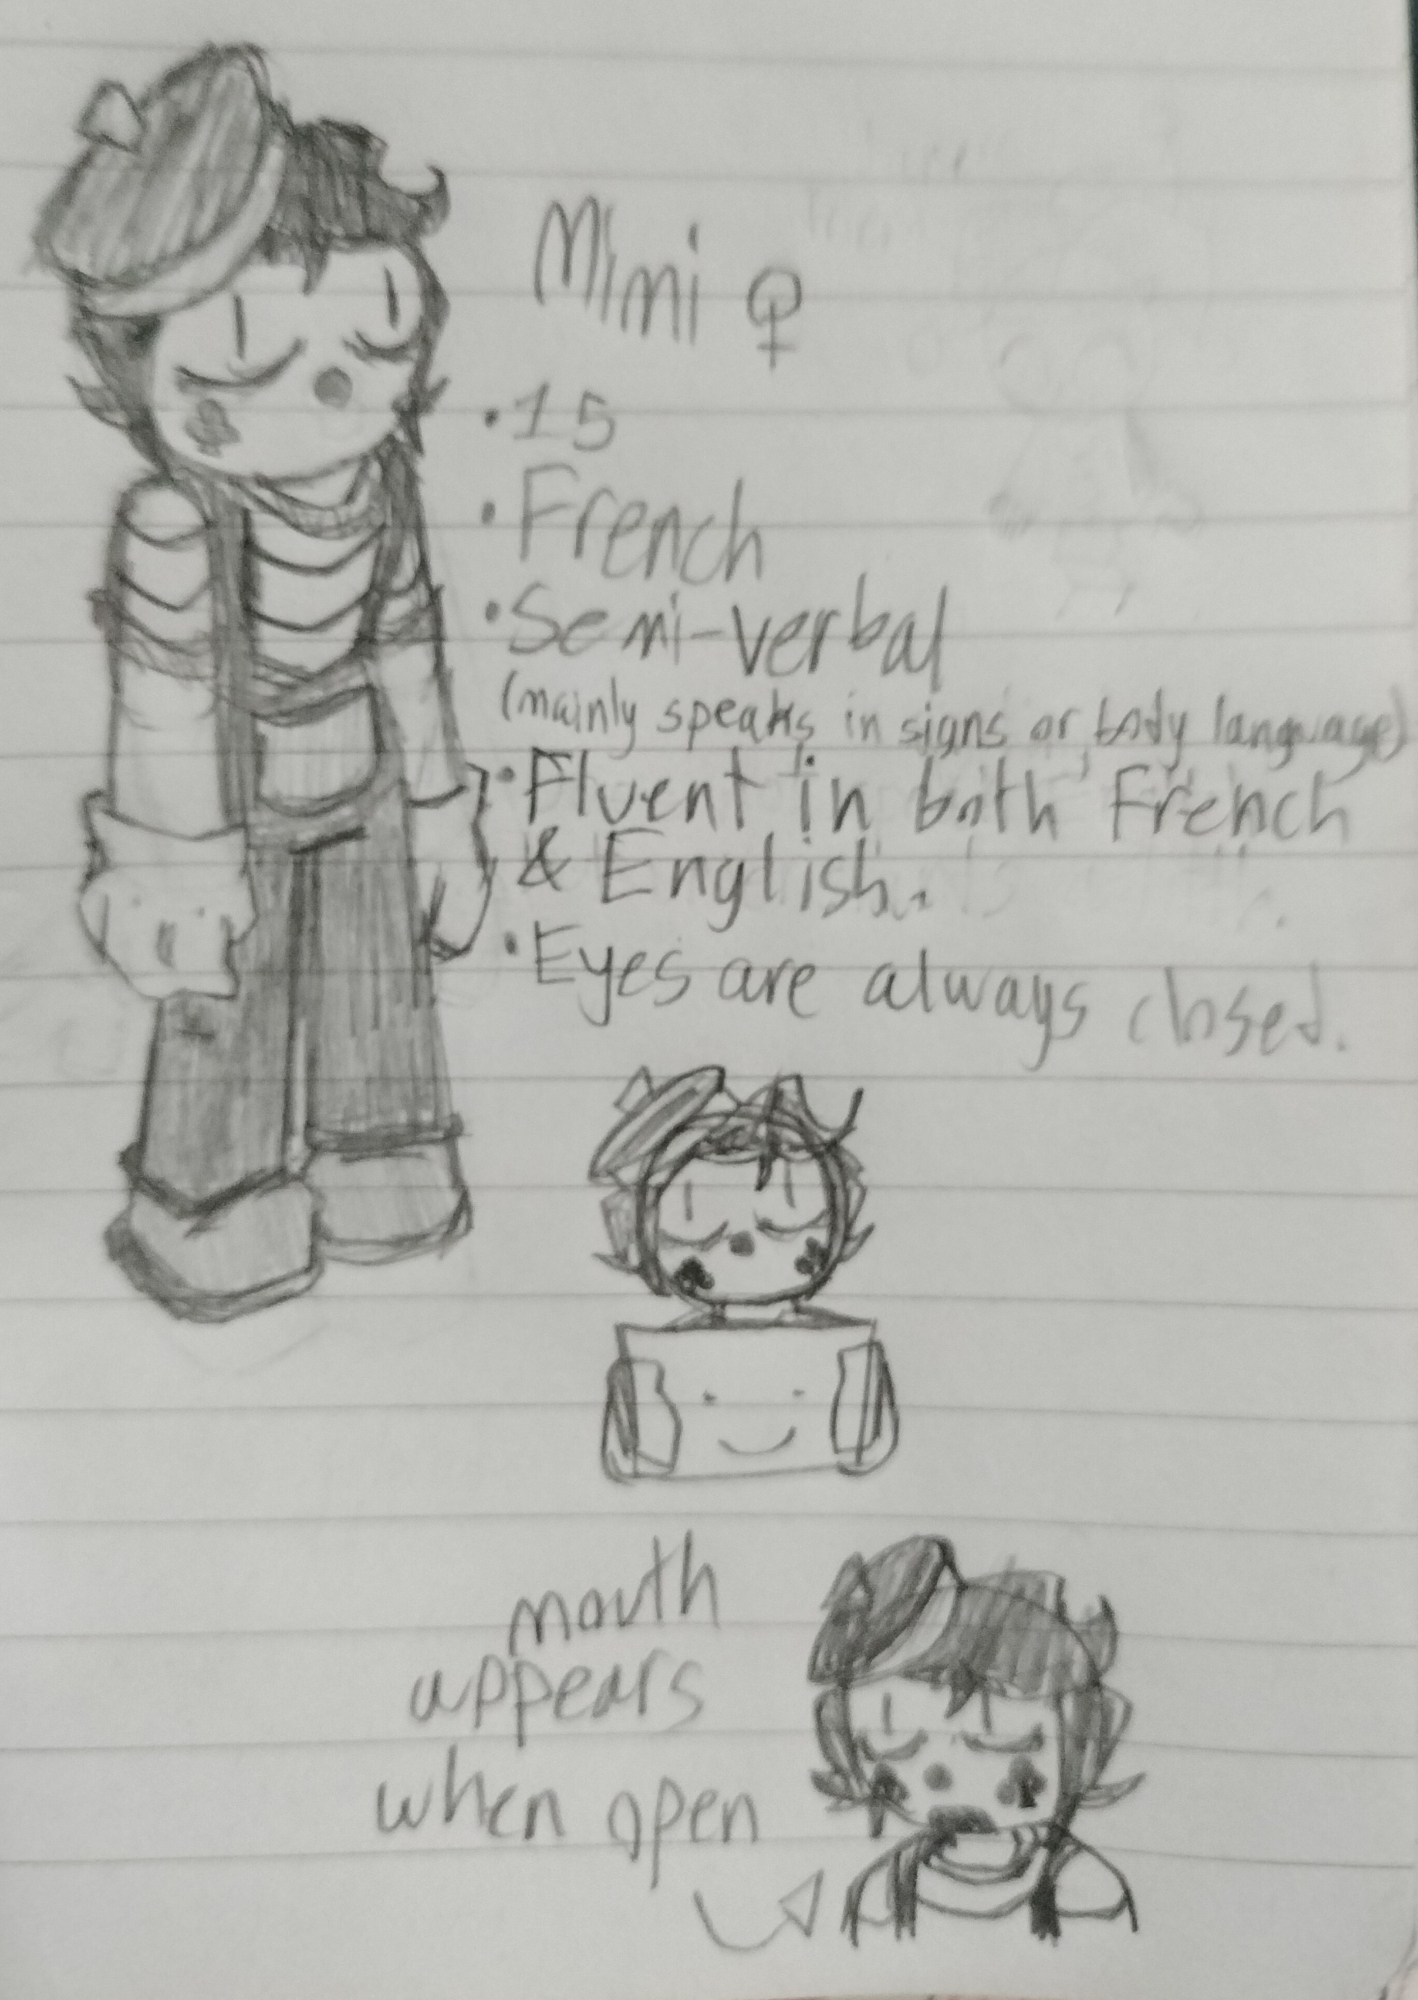 Mimi ♀
• 15
• French
• Semi-verbal
(mainly speaks in signs or body language)
• Fluent in both French
& English.
• Eyes are always closed.
mouth
appears
when open